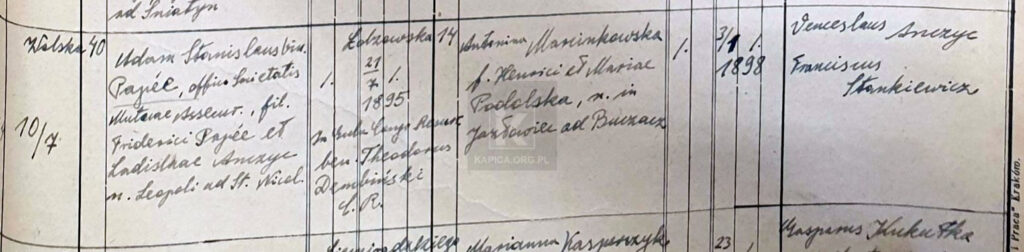 ad Śniatyn
Wolska 40
10/7
Adam Stanislaus bin.
Papée, offic. Societatis
Mutuae Assecur., fil.
Friderici Papée et
Ladislae Anczyc
n. Leopoli ad St. Nicol.
1.
Łobzowska 14
21/7
1895
1.
In Eccla Congr. Resurr.
ben. Theodorus
Dembiński
C. R.
Antonina Marcinkowska
f. Henrici et Mariae
Podolska, n. in
Jazłowiec ad Buczacz
1.
3/1
1898
1.
Venceslaus Anczyc
Franciscus
Stankiewicz
Marianna Kasperczyk
23
Gasparus Kukułka
"Praca" Kraków.
K
KAPICA.ORG.PL